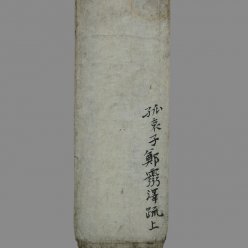 孤哀子鄭雱澤疏上